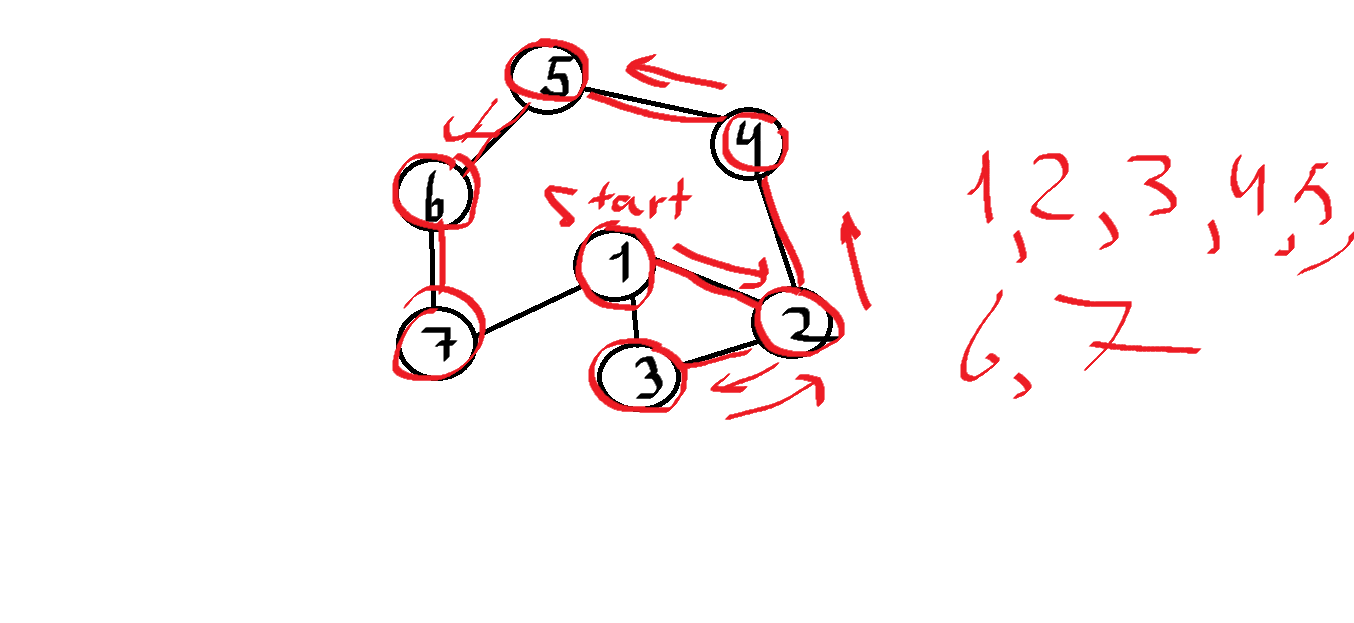 5
4
6
Start
1
2
7
3
1, 2, 3, 4, 5,
6, 7